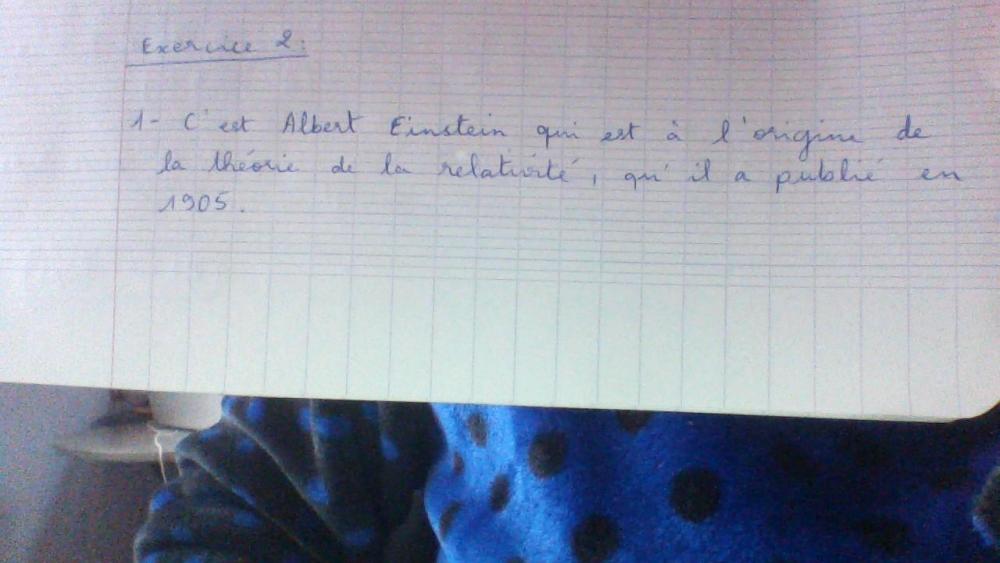 Exercice 2:
1- C'est Albert Einstein qui est à l'origine de
la théorie de la relativité, qu'il a publié en
1905.